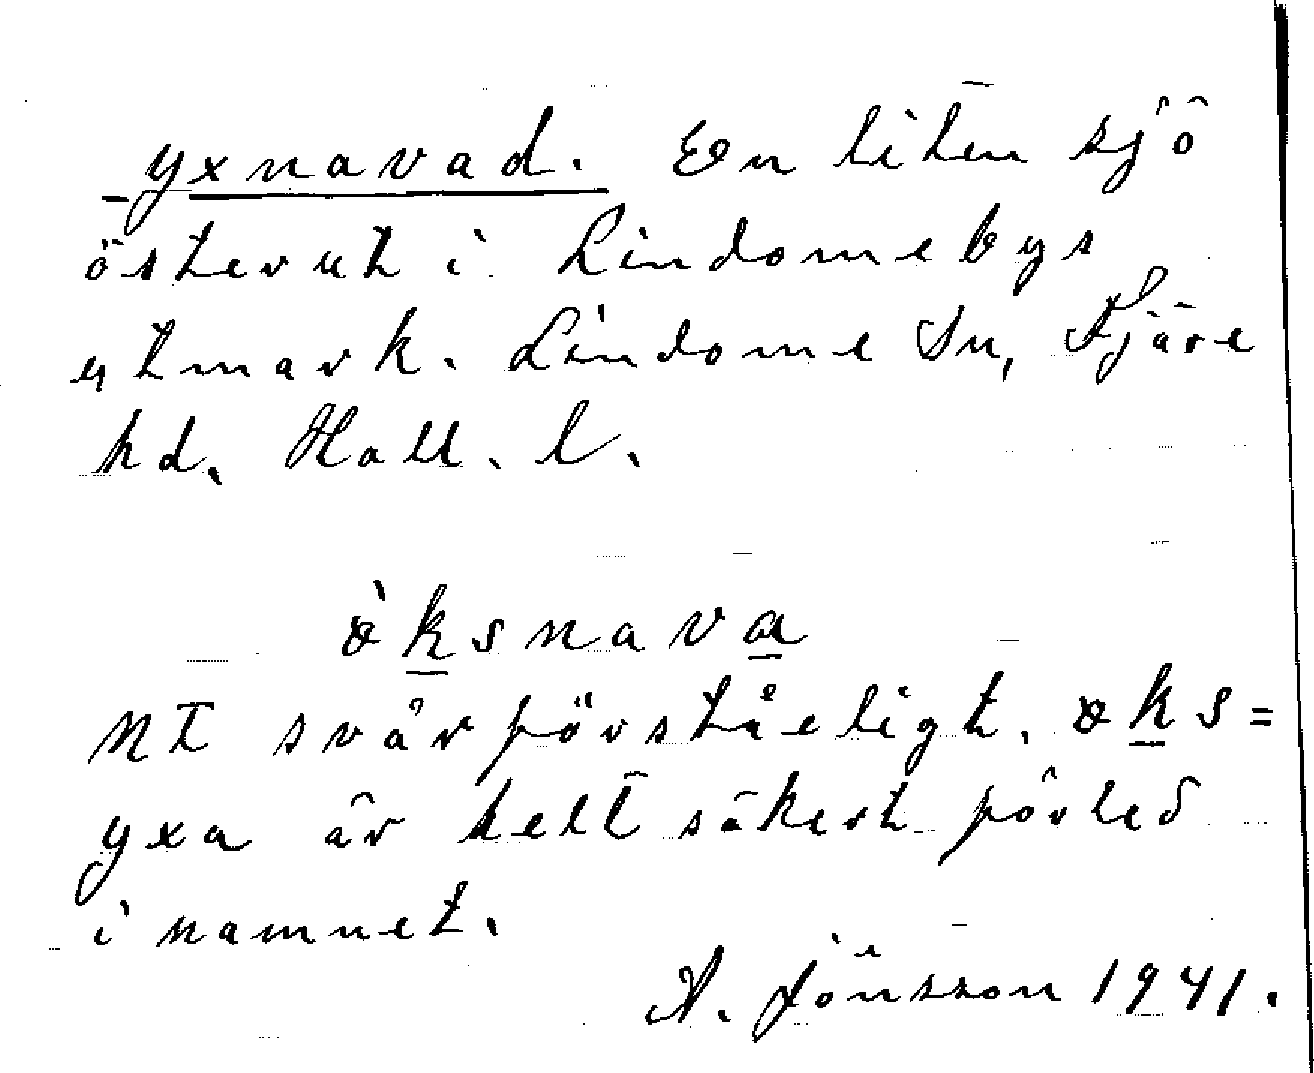 yxnavad. En liten sjö
österut i Lindomebys
utmark. Lindome Sn, Fjäre
hd. Hall. l.
ø̀ksnava
Nt svårförståeligt. øks=
yxa är helt säkert förled
i namnet.
A. Jönsson 1941.